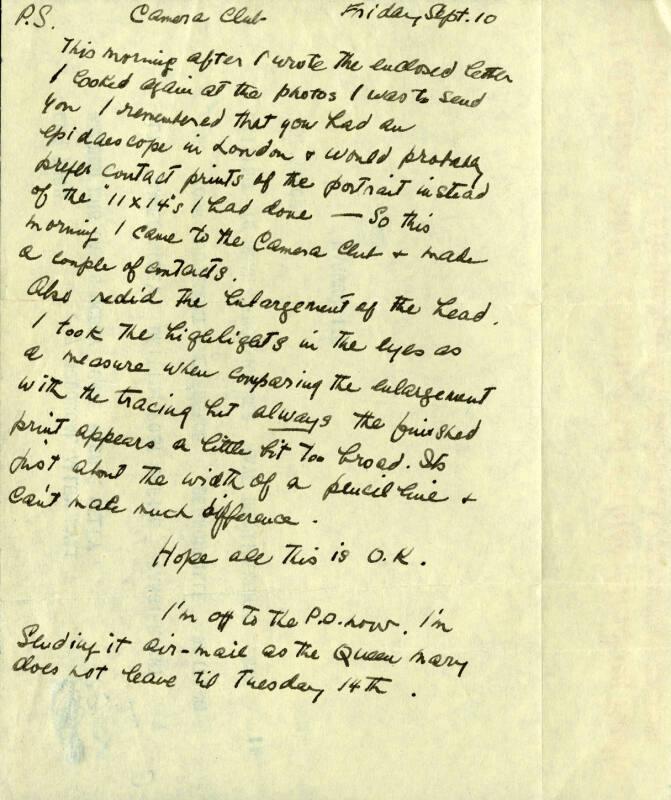 P.S. Camera Club Friday, Sept. 10
This morning after I wrote the enclosed letter
I looked again at the photos I was to send
you I remembered that you had an
epidaescope in London & would probably
prefer contact prints of the portrait instead
of the "11 x 14"s I had done — So this
morning I came to the Camera Club & made
a couple of contacts.
Also redid the enlargement of the head.
I took the highlights in the eyes as
a measure when comparing the enlargement
with the tracing but always the finished
print appears a little bit too broad. Its
just about the width of a pencil line &
can't make much difference.
Hope all this is O.K.
I'm off to the P.O. now. I'm
sending it air-mail as the Queen Mary
does not leave til Tuesday 14th.